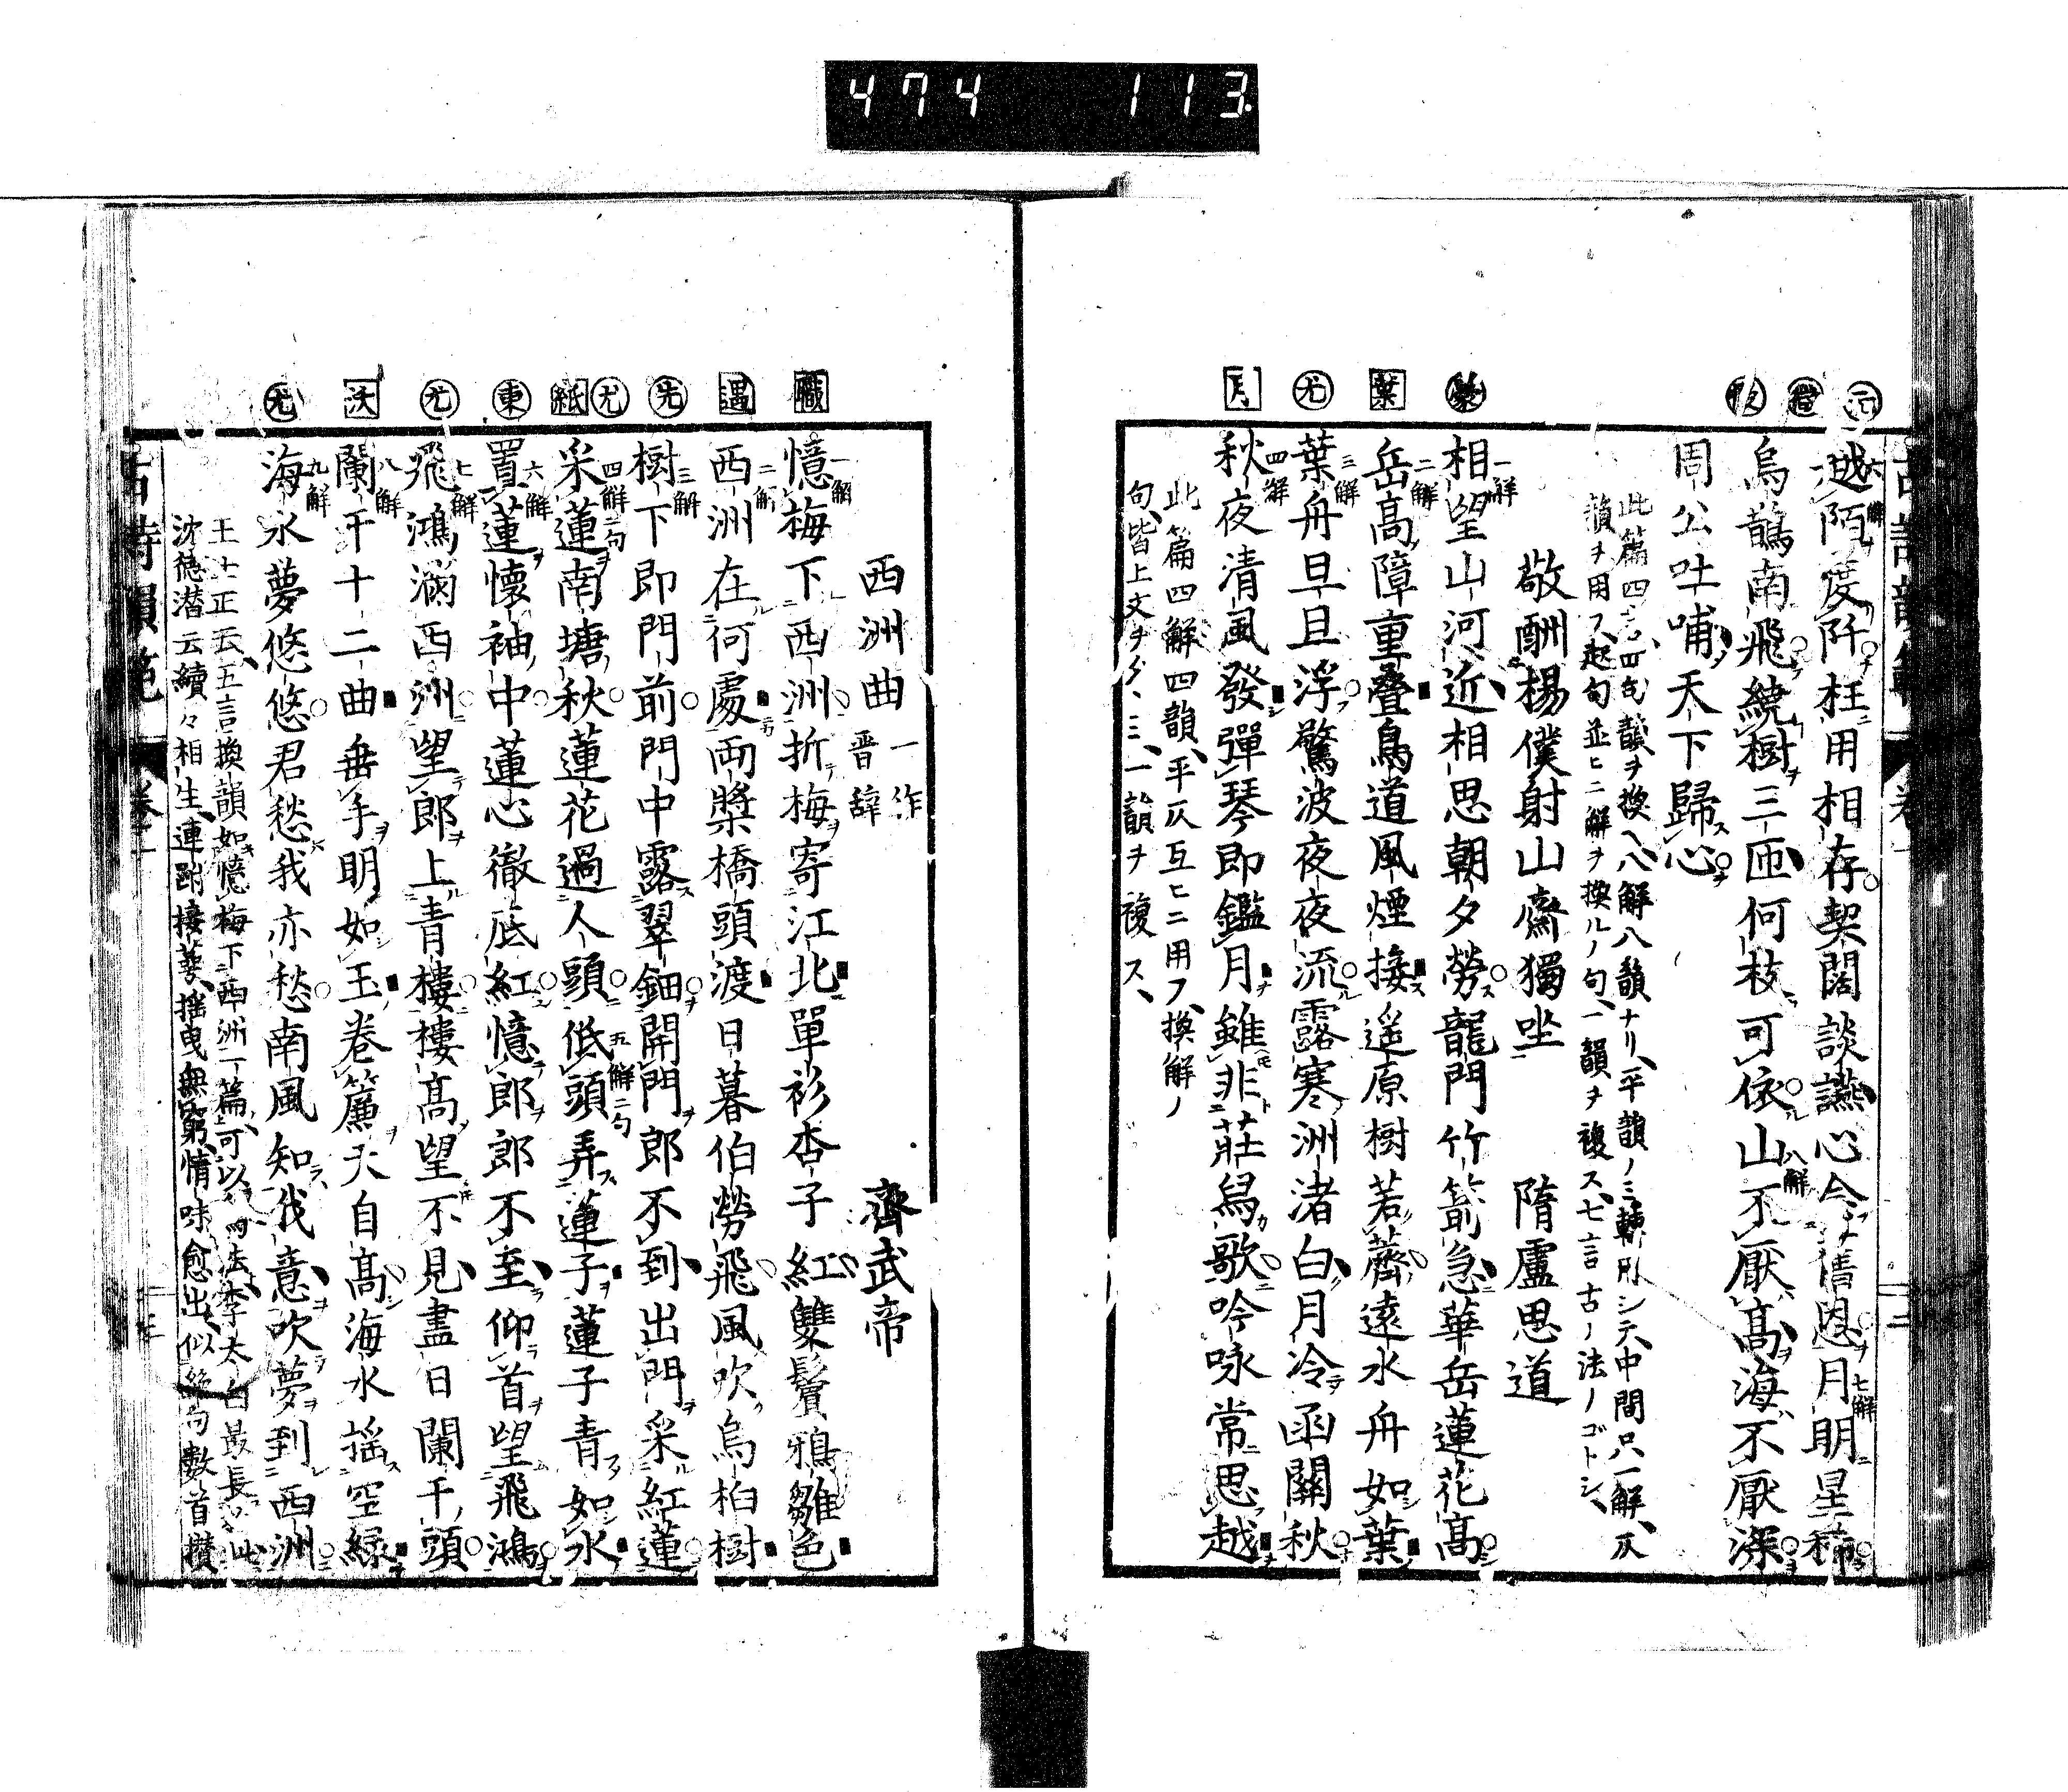 474 113
元
微
侵
六解
越陌度阡枉用相存契闊談讌心念舊恩月明星稀
七解
烏鵲南飛繞樹三匝何枝可依山不厭高海不厭深
八解
周公吐哺天下歸心
此篇四言四句韻ヲ換ヘ八解八韻ナリ、平韻ノミ轉用シテ、中間只一解、仄
韻ヲ用フ、起句並ヒニ解ヲ換ルノ句、一韻ヲ複ス、七言古ノ法ノゴトシ、
敬酬楊僕射山齋獨坐 隋盧思道
豪
一解
相望山河近相思朝夕勞龍門竹箭急華岳蓮花高
葉
二解
岳高障重疊鳥道風煙接遥原樹若薺遠水舟如葉
尤
三解
葉舟旦旦浮驚波夜夜流露寒洲渚白月冷函關秋
月
四解
秋夜清風發彈琴即鑑月雖非莊舄歌吟咏常思越
此篇四解四韻、平仄互ヒニ用フ、換解ノ
句、皆上文ヲウケ、一韻ヲ複ス、
西洲曲 一作晋辭 齊武帝
職
一解
憶梅下西洲折梅寄江北單衫杏子紅雙鬢鴉雛色
遇
二解
西洲在何處兩槳橋頭渡日暮伯勞飛風吹烏桕樹
先
三解
樹下即門前門中露翠鈿開門郎不到出門采紅蓮
尤
紙
四解二句
采蓮南塘秋蓮花過人頭低頭弄蓮子蓮子青如水
五解二句
東
六解
置蓮懷袖中蓮心徹底紅憶郎郎不至仰首望飛鴻
尤
七解
飛鴻滿西洲望郎上青樓樓高望不見盡日闌干頭
沃
八解
闌干十二曲垂手明如玉卷簾天自高海水揺空緑
尤
九解
海水夢悠悠君愁我亦愁南風知我意吹夢到西洲
王士正云、五言換韻如憶梅下西洲一篇、可以爲法、李太白最長於此
沈徳潜云續々相生、連跗接萼、揺曳無窮、情味愈出、似絶句數首攅
古詩韻範 卷一